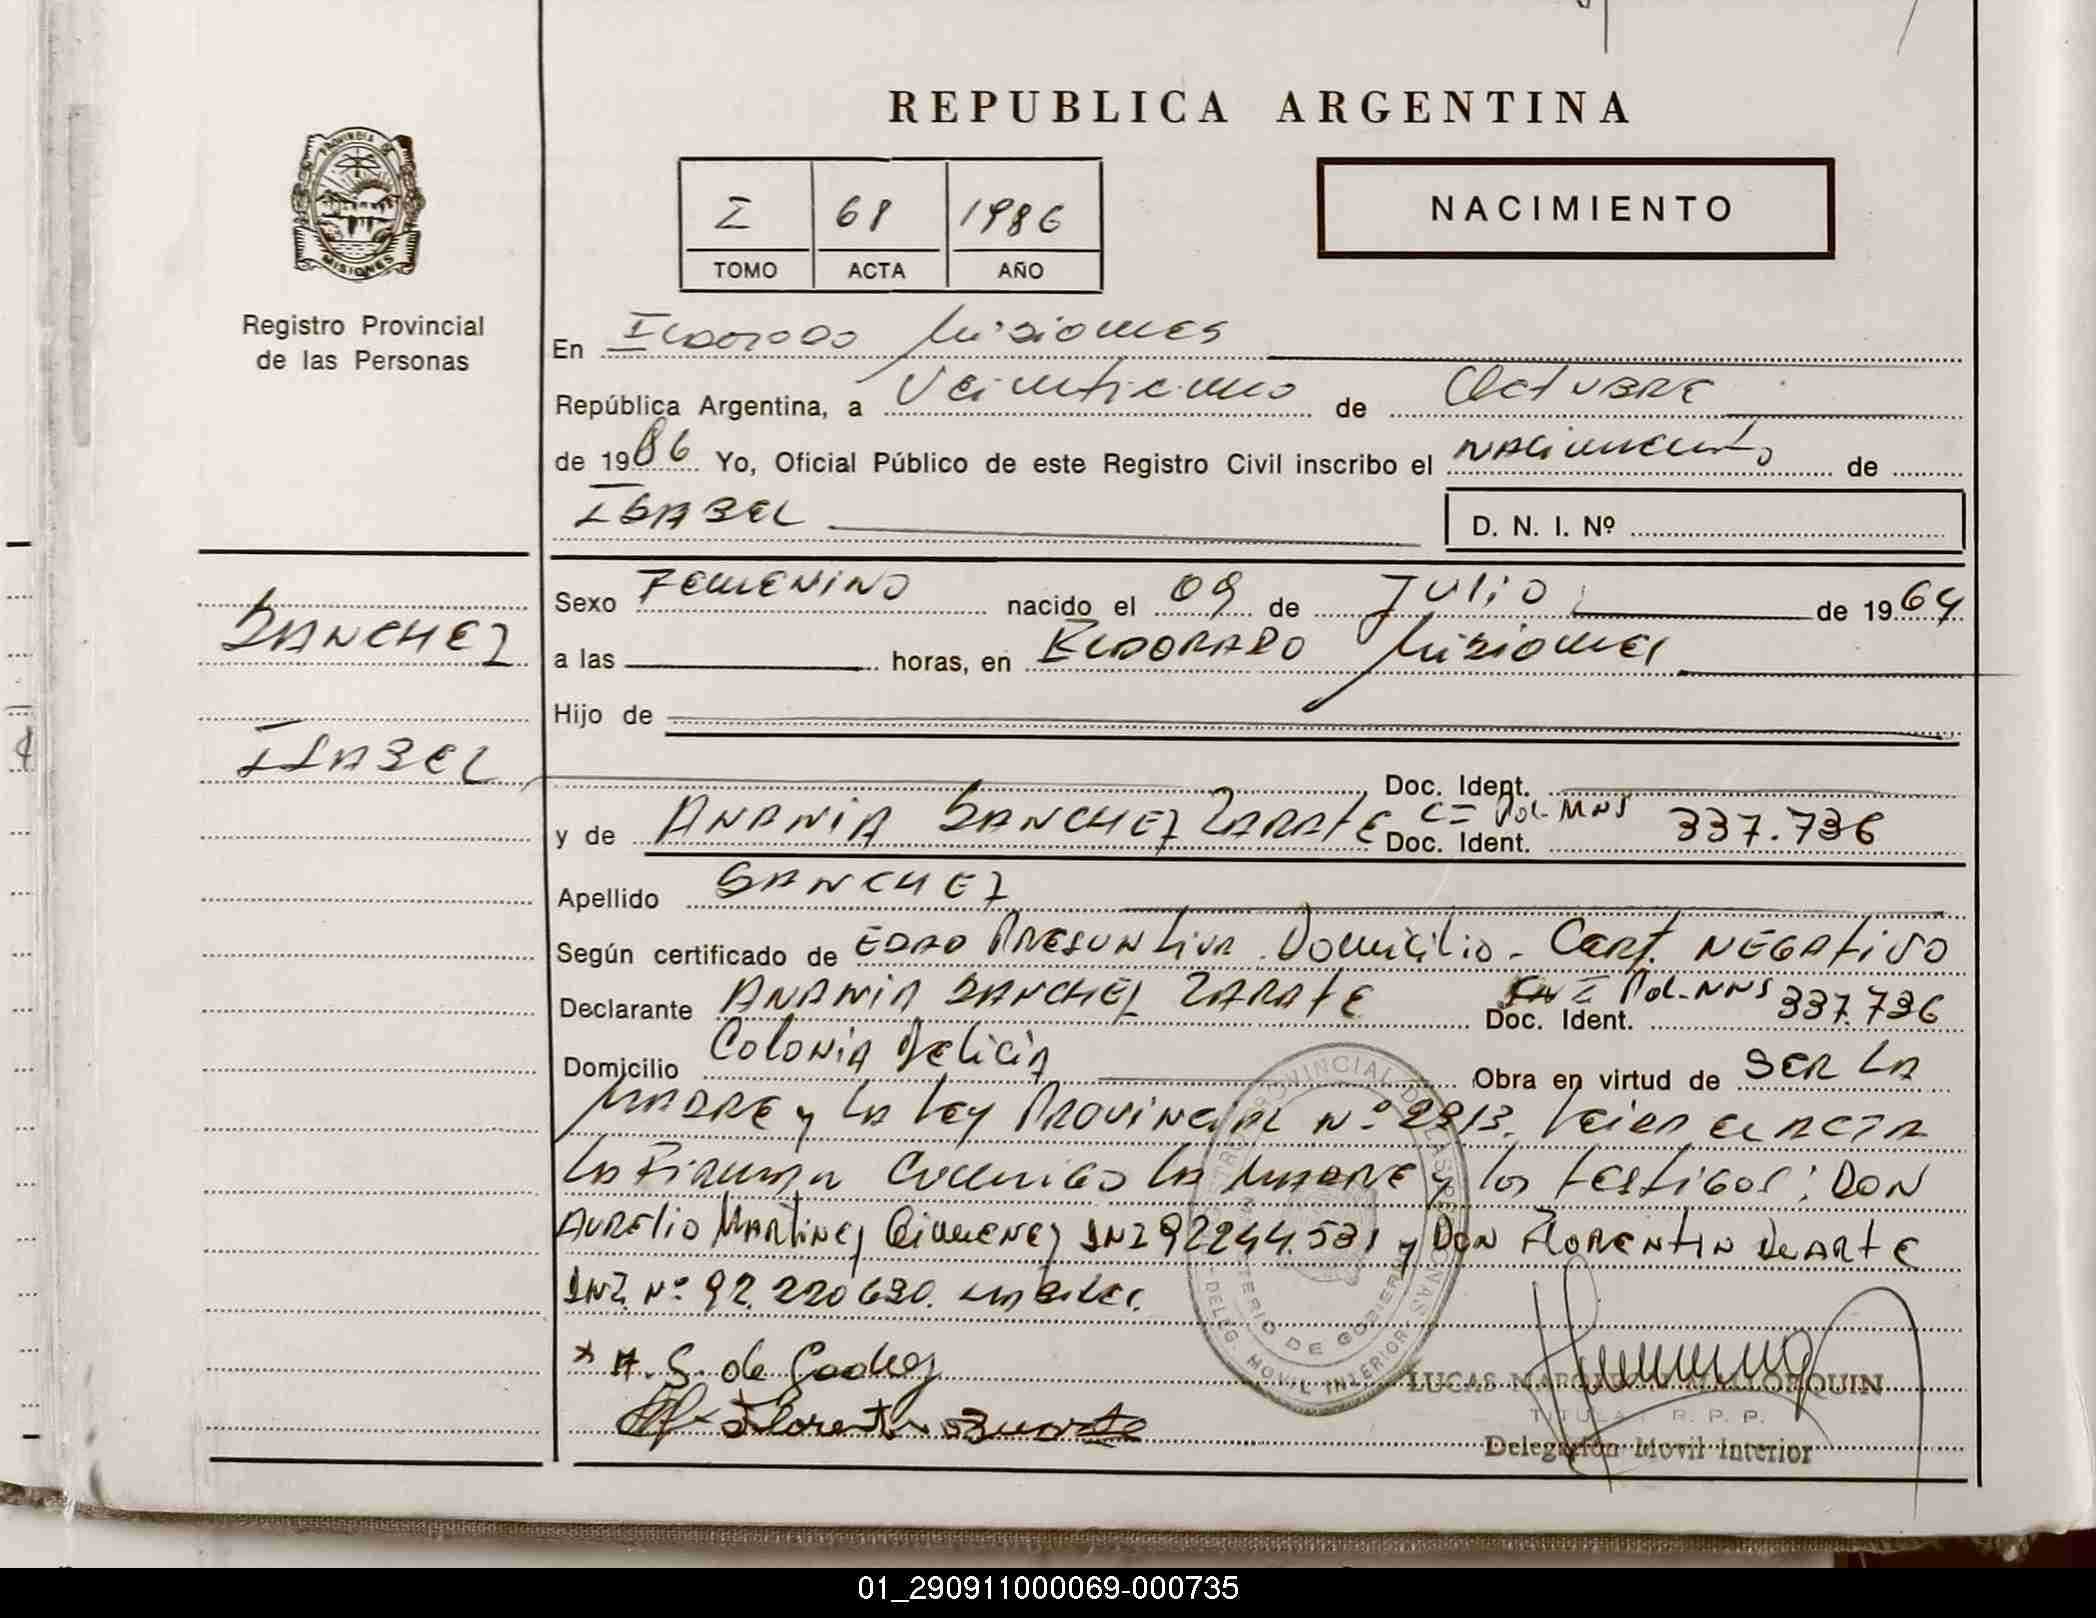 REPUBLICA ARGENTINA
PROVINCIA DE
MISIONES
Registro Provincial
de las Personas
I 68 1986
TOMO ACTA AÑO
NACIMIENTO
En Eldorado Misiones
República Argentina, a Veintiuno de Octubre
de 1986 Yo, Oficial Público de este Registro Civil inscribo el nacimiento de
ISABEL
D. N. I. Nº
SANCHEZ
ISABEL
Sexo Femenino nacido el 09 de Julio de 1964
a las horas, en Eldorado Misiones
Hijo de
Doc. Ident.
y de Anania Sanchez Zarate Doc. Ident. Pol. MNS 337.736
Apellido SANCHEZ
Según certificado de Edad Presuntiva. Domicilio - Cert. Negativo
Declarante Anania Sanchez Zarate Doc. Ident. Pol. MNS 337.736
Domicilio Colonia Delicia Obra en virtud de ser la
Madre y la Ley Provincial Nº 2213. el acta
la firman conmigo la madre y los testigos: Don
Aurelio Martinez Gimenez DNI 92244.531 y Don Florentin Duarte
DNI Nº 92.220630.
x A. S. de
Florentin Duarte
REGISTRO PROVINCIAL DE LAS PERSONAS
MINISTERIO DE GOBIERNO
DELEG. MOVIL INTERIOR
LUCAS MALLORQUIN
TITULAR R. P. P.
Delegación Movil Interior
01_290911000069-000735